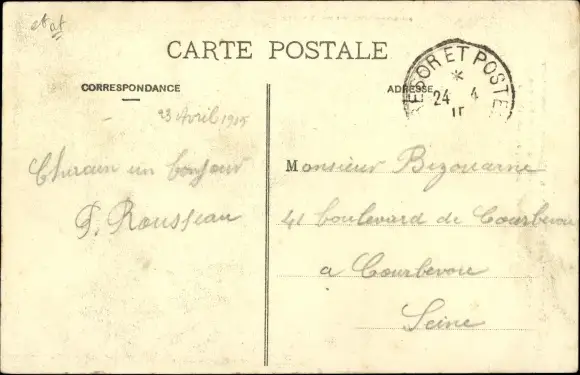 et at
CARTE POSTALE
CORRESPONDANCE
ADRESSE
TRESOR ET POSTES
*
24 4
15
23 Avril 1915
un bonjour
P. Rousseau
Monsieur Bizouarne
41 boulevard de Courbevoie
a Courbevoie
Seine